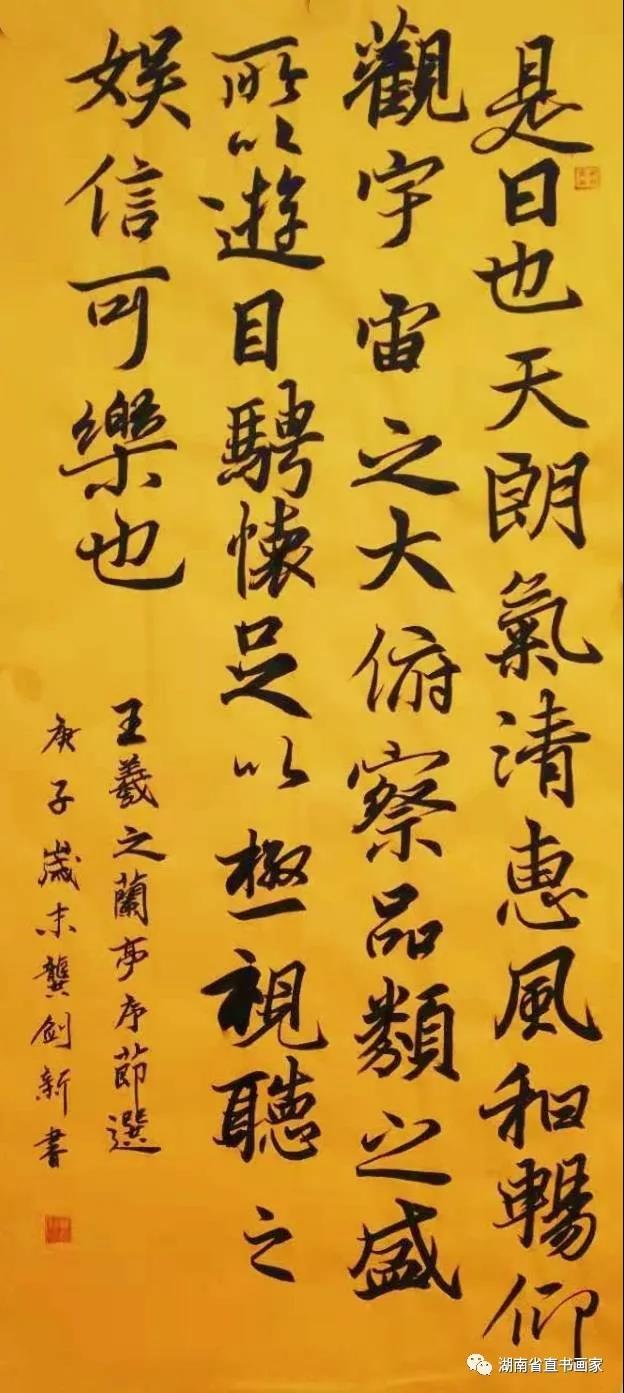 是日也天朗氣清惠風和暢仰
觀宇宙之大俯察品類之盛
所以遊目騁懷足以極視聽之
娛信可樂也
王羲之蘭亭序節選
庚子歲末龔劍新書
湖南省直书画家